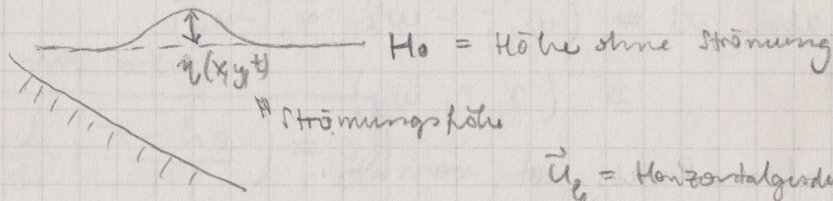 H₀ = Höhe ohne Strömung
η(x,y,t)
"Strömungshöhe
u⃗ₑ = Horizontalgesch